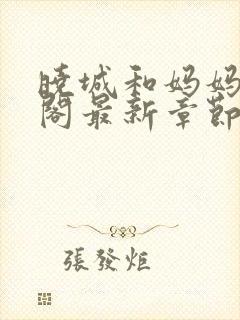 晓城和妈妈
閣最新章節
張發炬